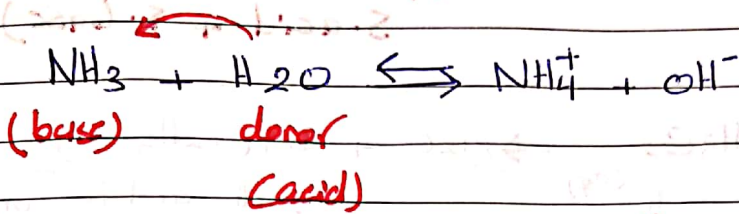 NH3 + H2O ⇌ NH4+ + OH-
(base) donor
(acid)